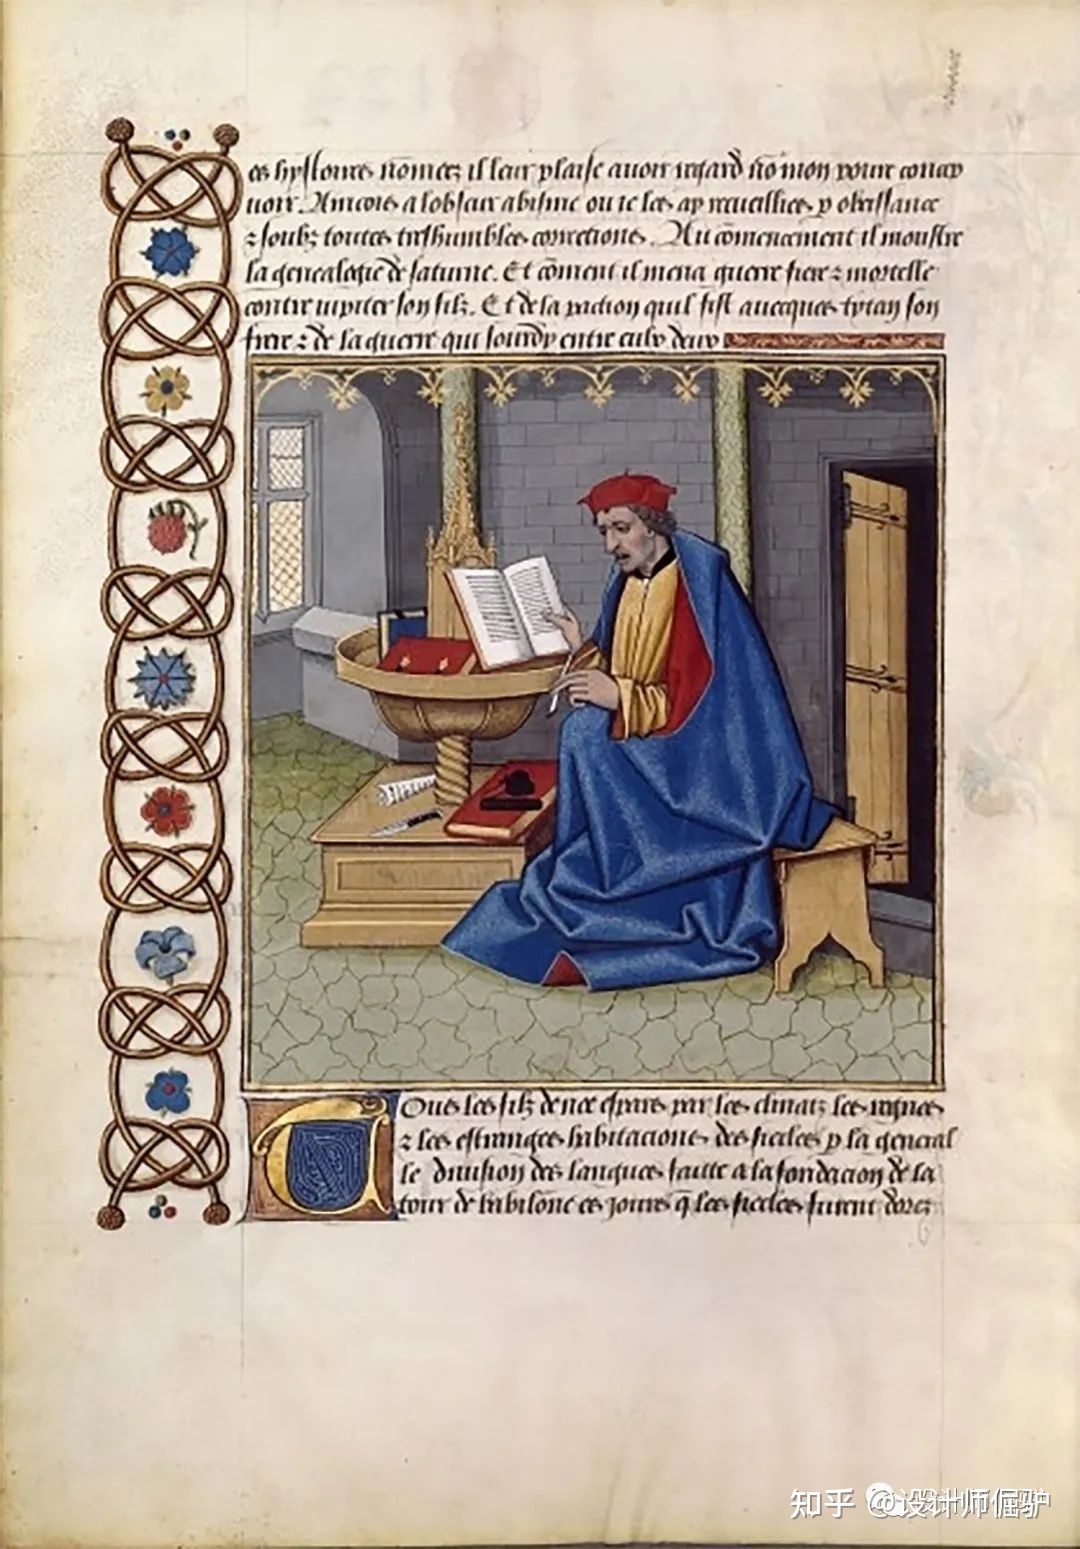 es hystoires nōmez il leur plaise auoir regard nō
uoir. Aincois a lobscur abisme ou ie les ay recueillies p obeissance
z soubz toutes treshumbles corrections. Au cōmencement il moustre
la genealogie de saturne. Et cōment il mena guerre fiere z mortelle
contre iupiter son filz. Et de la paction quil fist auecques tytan son
frere z de la guerre qui sourdy entre eulx deux
Tous les filz de noe espars par les climatz les regnes
z les estranges habitacions des siecles p la general
le diuision des langues faitte a la fondacion de la
tour de babilōne ces jours q̄ les siecles furent dorez
知乎 @设计师倔驴